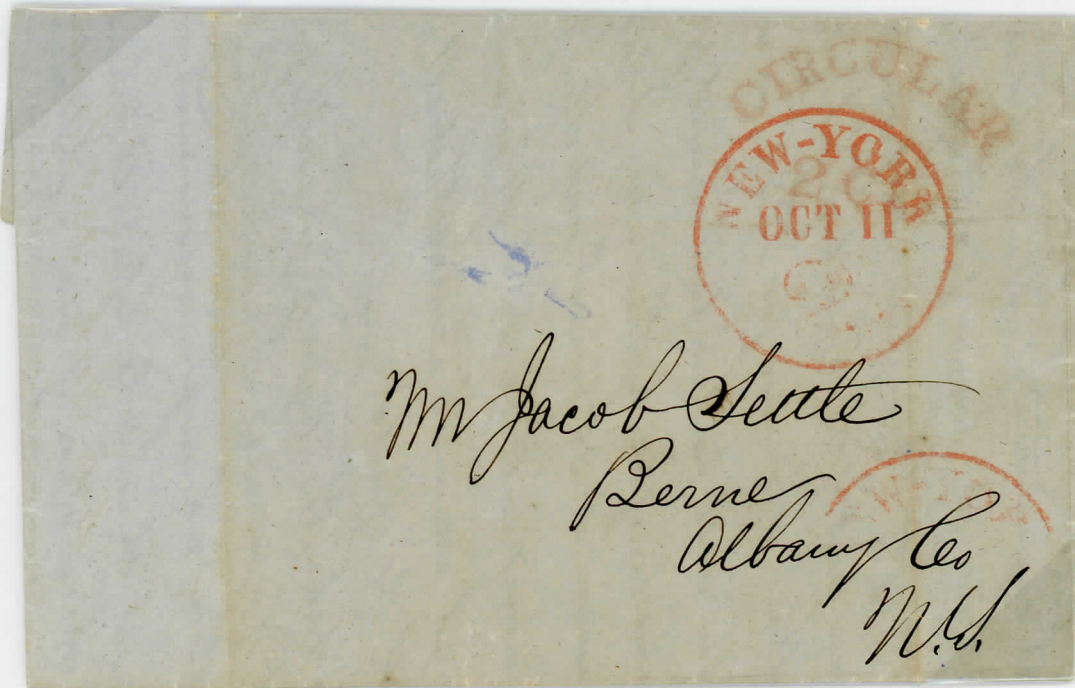 CIRCULAR
NEW-YORK
2 C
OCT 11
Mr Jacob Settle
Berne
NEW-YORK
Albany Co
N.Y.